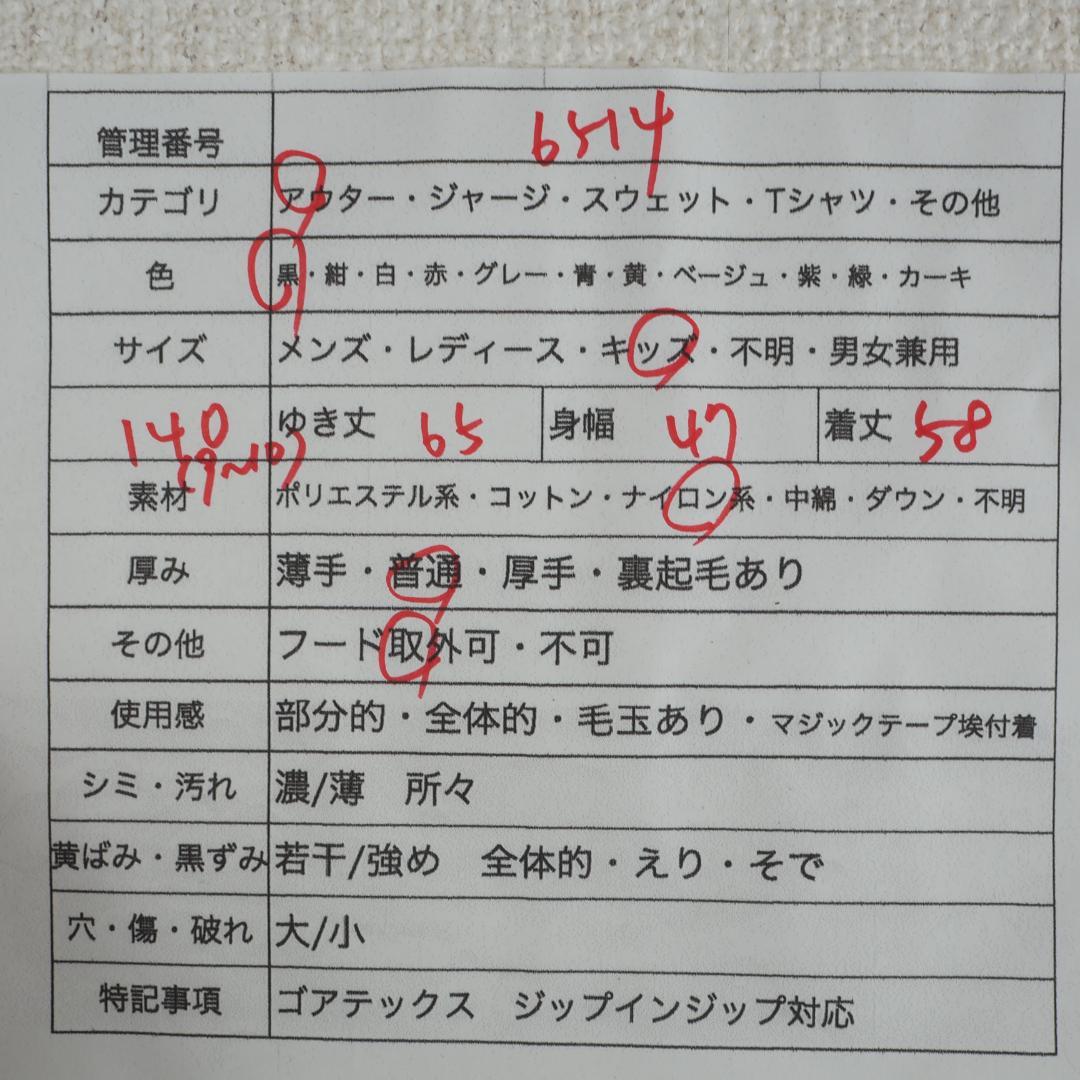 管理番号 6514
カテゴリ アウター・ジャージ・スウェット・Tシャツ・その他
色 黒・紺・白・赤・グレー・青・黄・ベージュ・紫・緑・カーキ
サイズ メンズ・レディース・キッズ・不明・男女兼用
140 ゆき丈 65 身幅 47 着丈 58
(9~10)
素材 ポリエステル系・コットン・ナイロン系・中綿・ダウン・不明
厚み 薄手・普通・厚手・裏起毛あり
その他 フード取外可・不可
使用感 部分的・全体的・毛玉あり・マジックテープ埃付着
シミ・汚れ 濃/薄 所々
黄ばみ・黒ずみ 若干/強め 全体的・えり・そで
穴・傷・破れ 大/小
特記事項 ゴアテックス ジップインジップ対応